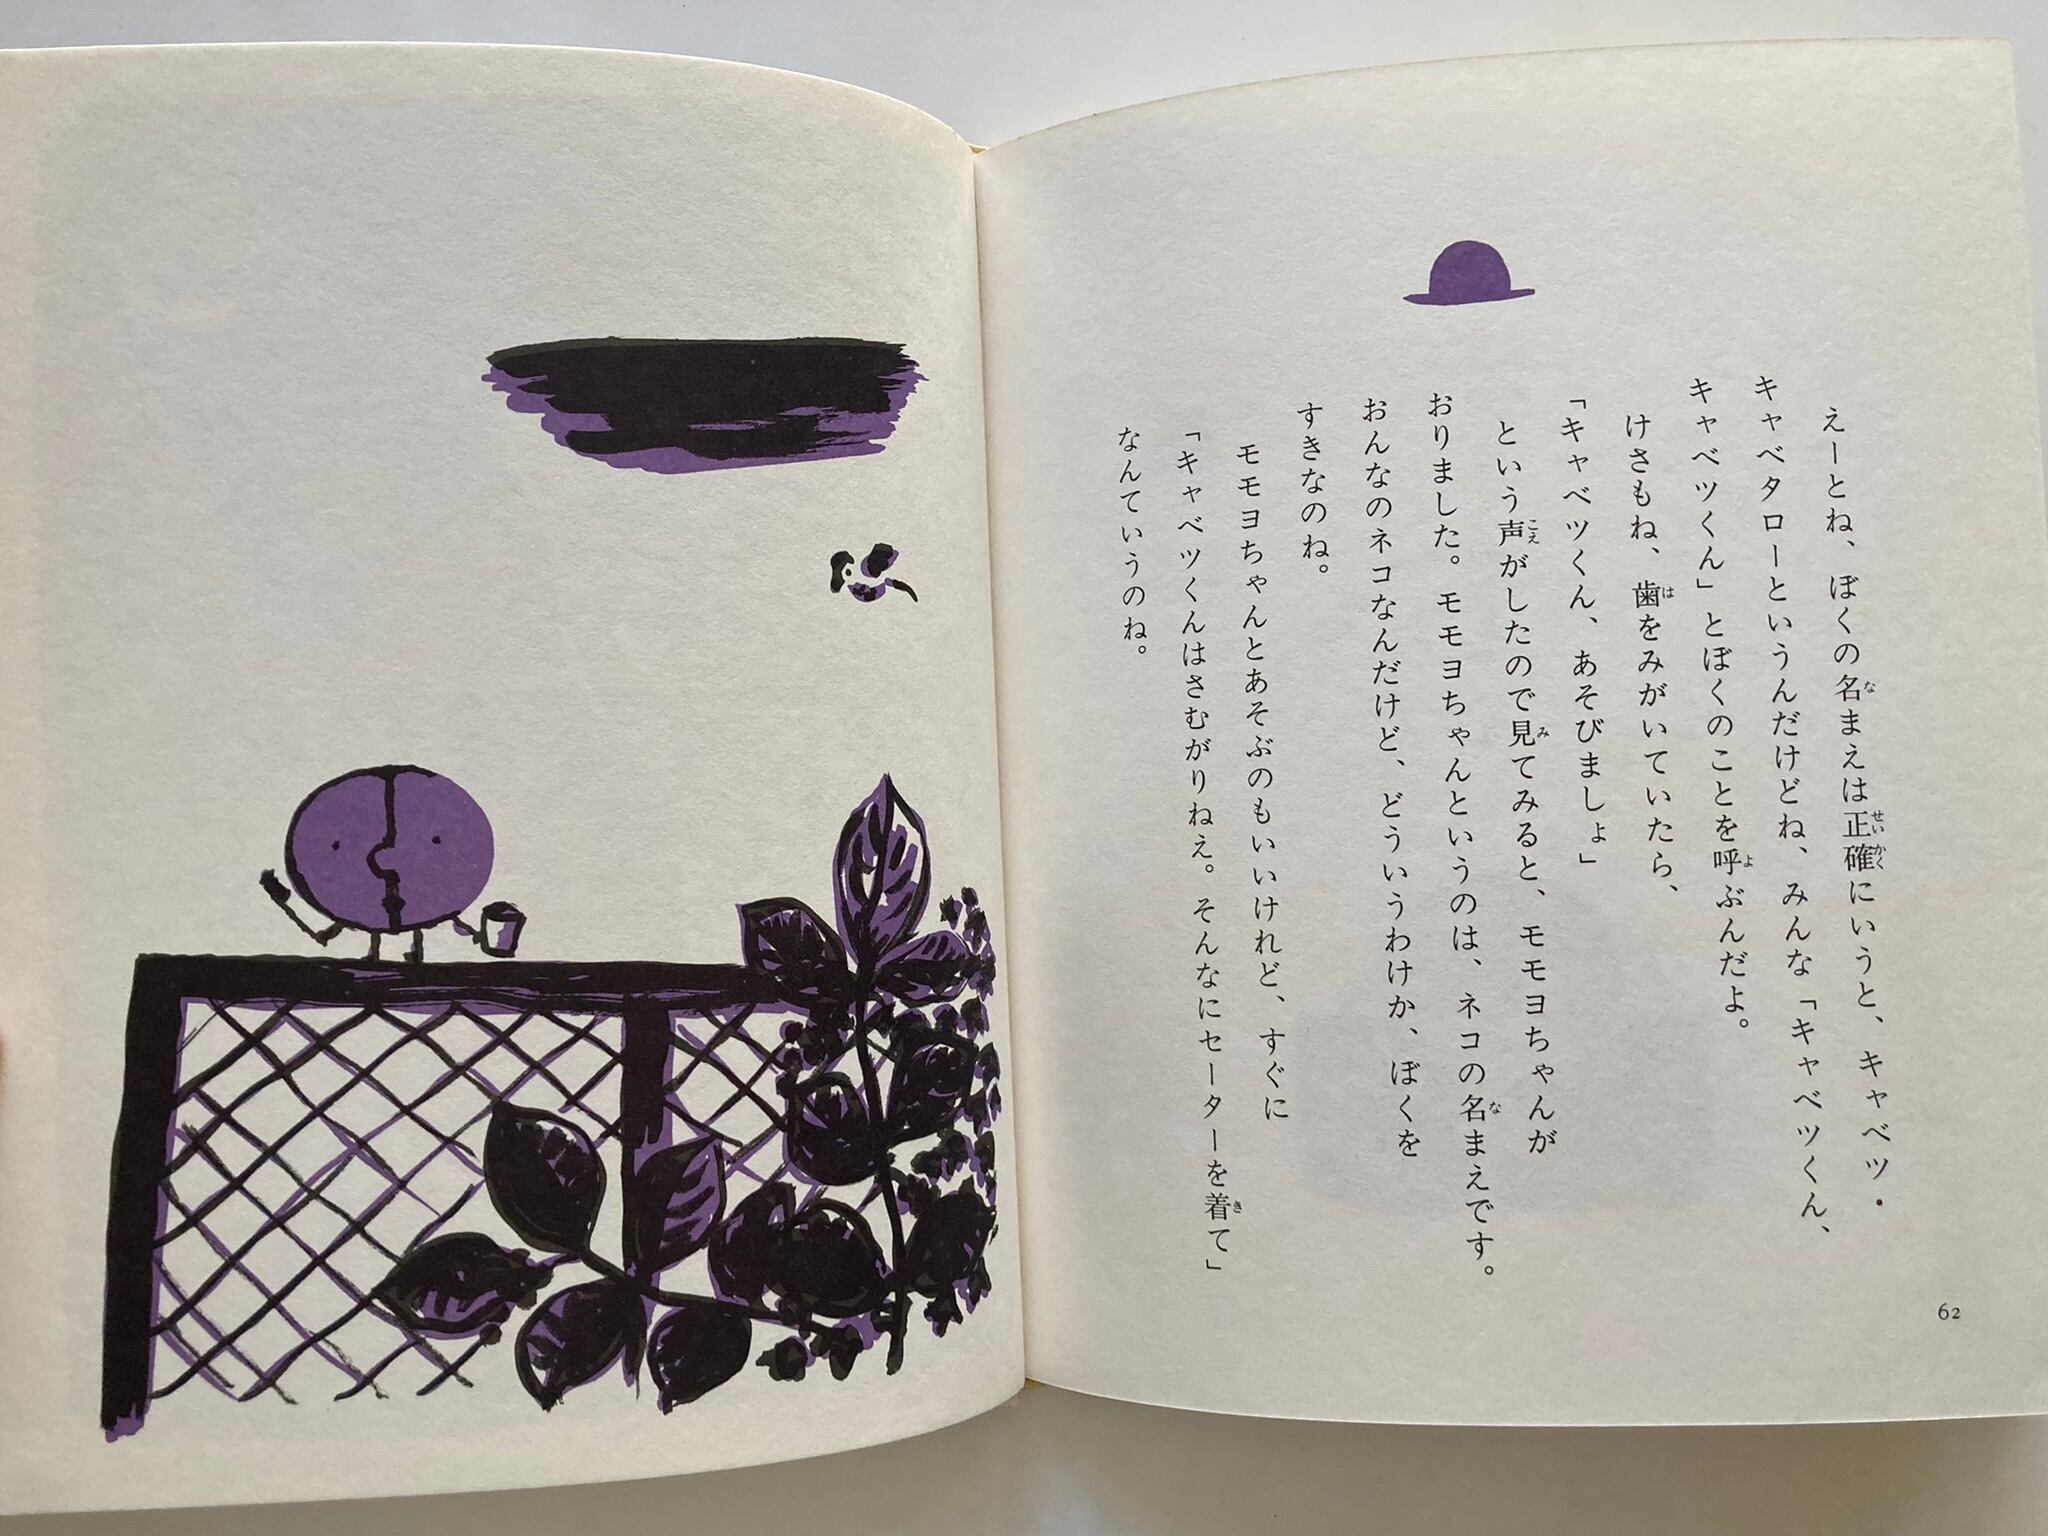 えーとね、ぼくの名まえは正確にいうと、キャベツ・
キャベタローというんだけどね、みんな「キャベツくん、
キャベツくん」とぼくのことを呼ぶんだよ。
けさもね、歯をみがいていたら、
「キャベツくん、あそびましょ」
という声がしたので見てみると、モモヨちゃんが
おりました。モモヨちゃんというのは、ネコの名まえです。
おんなのネコなんだけど、どういうわけか、ぼくを
すきなのね。
モモヨちゃんとあそぶのもいいけれど、すぐに
「キャベツくんはさむがりねえ。そんなにセーターを着て」
なんていうのね。
62